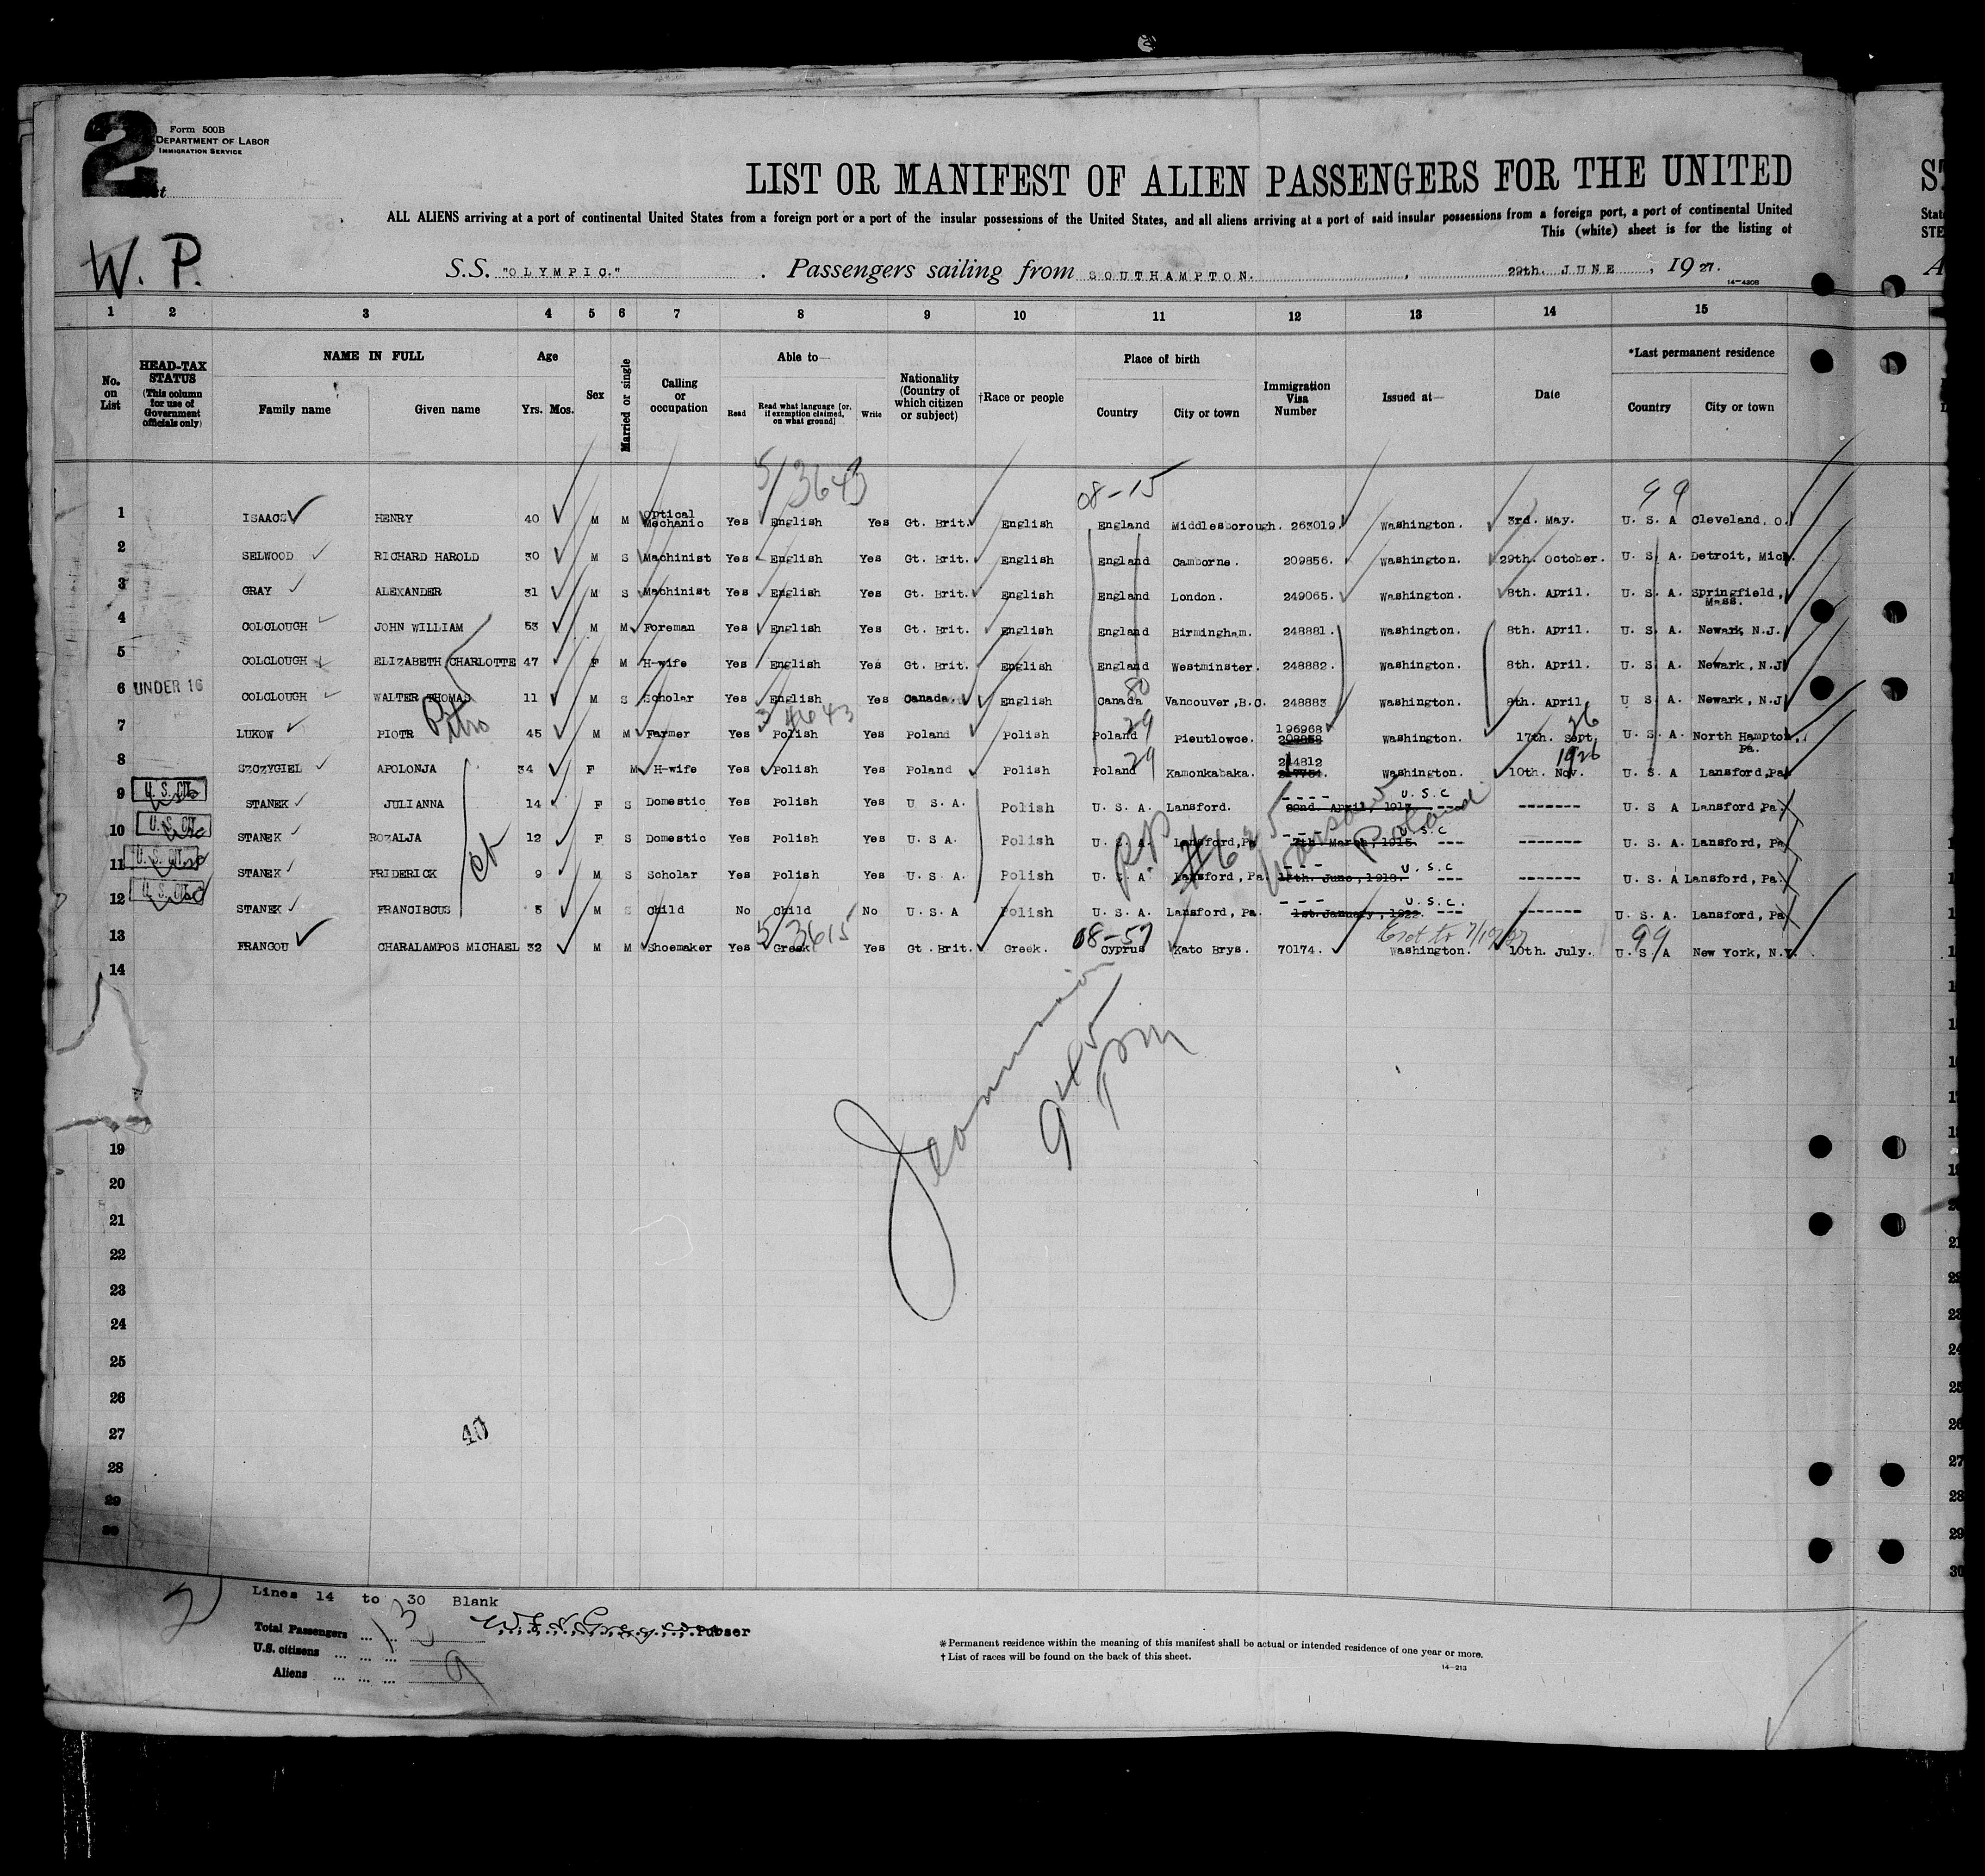 2
Form 500B
DEPARTMENT OF LABOR
IMMIGRATION SERVICE
LIST OR MANIFEST OF ALIEN PASSENGERS FOR THE UNITED
ALL ALIENS arriving at a port of continental United States from a foreign port or a port of the insular possessions of the United States, and all aliens arriving at a port of said insular possessions from a foreign port, a port of continental United
This (white) sheet is for the listing of
W. P.
S.S. "OLYMPIC." Passengers sailing from SOUTHAMPTON. , 29th. JUNE , 1927.
14-430B
1 2 3 4 5 6 7 8 9 10 11 12 13 14 15
No. on List HEAD-TAX STATUS (This column for use of Government officials only) NAME IN FULL Family name Given name Age Yrs. Mos. Sex Married or single Calling or occupation Able to— Read Read what language [or, if exemption claimed, on what ground] Write Nationality (Country of which citizen or subject) †Race or people Place of birth Country City or town Immigration Visa Number Issued at— Date *Last permanent residence Country City or town
5/3643 08-15 99
1 ISAACS HENRY 40 M M Optical Mechanic Yes English Yes Gt. Brit. English England Middlesborough. 263019. Washington. 3rd. May. U. S. A Cleveland, O.
2 SELWOOD RICHARD HAROLD 30 M S Machinist Yes English Yes Gt. Brit. English England Camborne. 209856. Washington. 29th. October. U. S. A. Detroit, Mich.
3 GRAY ALEXANDER 31 M S Machinist Yes English Yes Gt. Brit. English England London. 249065. Washington. 8th. April. U. S. A. Springfield, Mass.
4 COLCLOUGH JOHN WILLIAM 53 M M Foreman Yes English Yes Gt. Brit. English England Birmingham. 248881. Washington. 8th. April. U. S. A. Newark, N.J.
5 COLCLOUGH ELIZABETH CHARLOTTE 47 F M H-wife Yes English Yes Gt. Brit. English England Westminster. 248882. Washington. 8th. April. U. S. A. Newark, N.J
6 UNDER 16 COLCLOUGH WALTER THOMAS 11 M S Scholar Yes English Yes Canada. English Canada 80 Vancouver, B.C. 248883 Washington. 8th. April. U S A. Newark, N.J
7 LUKOW PIOTR 45 M M Farmer Yes Polish Yes Poland Polish Poland 29 Pieutlowce. 196968 208858 Washington. 17th. Sept. 26 U. S. A. North Hampton, Pa.
8 SZCZYGIEL APOLONJA 34 F M H-wife Yes Polish Yes Poland Polish Poland 29 Kamonkabaka. 214812 Washington. 10th. Nov. 1926 U. S. A Lansford,Pa
9 U. S. CIT. STANEK JULIANNA 14 F S Domestic Yes Polish Yes U. S. A. Polish U. S. A. Lansford. 22nd. April, 1913. U.S.C ------- U. S. A Lansford Pa.
10 U. S. CIT. STANEK ROZALJA 12 F S Domestic Yes Polish Yes U. S A. Polish U. S. A. Lansford,Pa 7th March, 1915. U.S.C ------- U. S. A. Lansford, Pa
11 U. S. CIT. STANEK FRIDERICK 9 M S Scholar Yes Polish Yes U. S. A. Polish U. S. A Lansford, Pa. June, 1918. U.S.C ------- U. S. A Lansford, Pa.
12 U. S. CIT. STANEK FRANCISCUS 5 M S Child No Child No U. S. A Polish U. S. A. Lansford, Pa. 1st.January, 1922. U.S.C. ------- U. S. A. Lansford, Pa
5/3615 08-57 99
13 FRANGOU CHARALAMPOS MICHAEL 32 M M Shoemaker Yes Greek Yes Gt. Brit. Greek. Cyprus Kato Brys. 70174. Washington. 10th. July. U. S. A New York, N.Y.
Warsaw Poland
14
19
20
21
22
23
24
25
26
27
28
29
30
40
Lines 14 to 30 Blank
Total Passengers ... ... 13
Purser
U.S. citizens ... ... ...
Aliens ... ... ... 9
*Permanent residence within the meaning of this manifest shall be actual or intended residence of one year or more.
† List of races will be found on the back of this sheet.
14-213